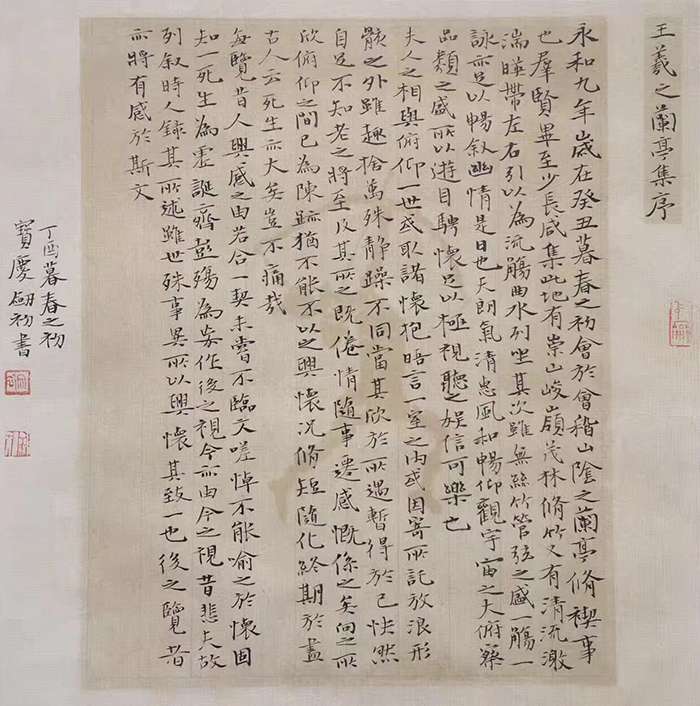 王羲之蘭亭集序
永和九年歲在癸丑暮春之初會於會稽山陰之蘭亭脩禊事
也羣賢畢至少長咸集此地有崇山峻嶺茂林脩竹又有清流激
湍暎帶左右引以為流觴曲水列坐其次雖無絲竹管弦之盛一觴一
詠亦足以暢叙幽情是日也天朗氣清惠風和暢仰觀宇宙之大俯察
品類之盛所以遊目騁懷足以極視聽之娛信可樂也
夫人之相與俯仰一世或取諸懷抱晤言一室之內或因寄所託放浪形
骸之外雖趣捨萬殊静躁不同當其欣於所遇暫得於己快然
自足不知老之將至及其所之既倦情隨事遷感慨係之矣向之所
欣俯仰之間已為陳跡猶不能不以之興懷況脩短隨化終期於盡
古人云死生亦大矣豈不痛哉
每覽昔人興感之由若合一契未嘗不臨文嗟悼不能喻之於懷固
知一死生為虛誕齊彭殤為妄作後之視今亦由今之視昔悲夫故
列叙時人錄其所述雖世殊事異所以興懷其致一也後之覽者
亦將有感於斯文
丁酉暮春之初
寶慶劍初書